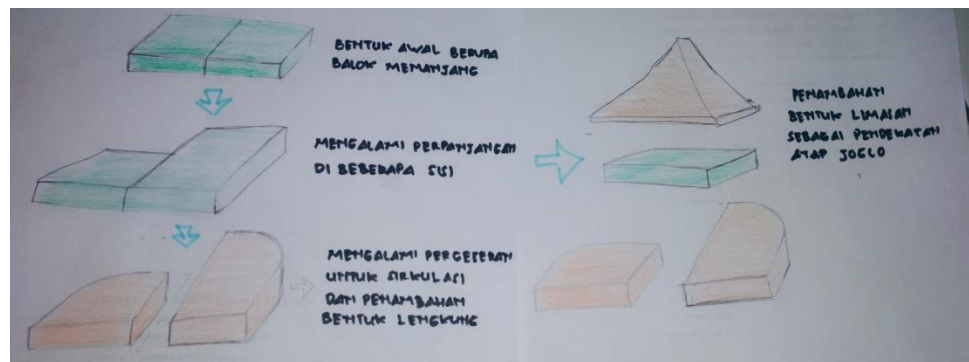 BENTUK AWAL BERUPA
BALOK MEMANJANG
MENGALAMI PERPANJANGAN
DI BEBERAPA SISI
MENGALAMI PERGESERAN
UNTUK SIRKULASI
DAN PENAMBAHAN
BENTUK LENGKUNG
PENAMBAHAN
BENTUK LIMASAN
SEBAGAI PENDEKATAN
ATAP JOGLO